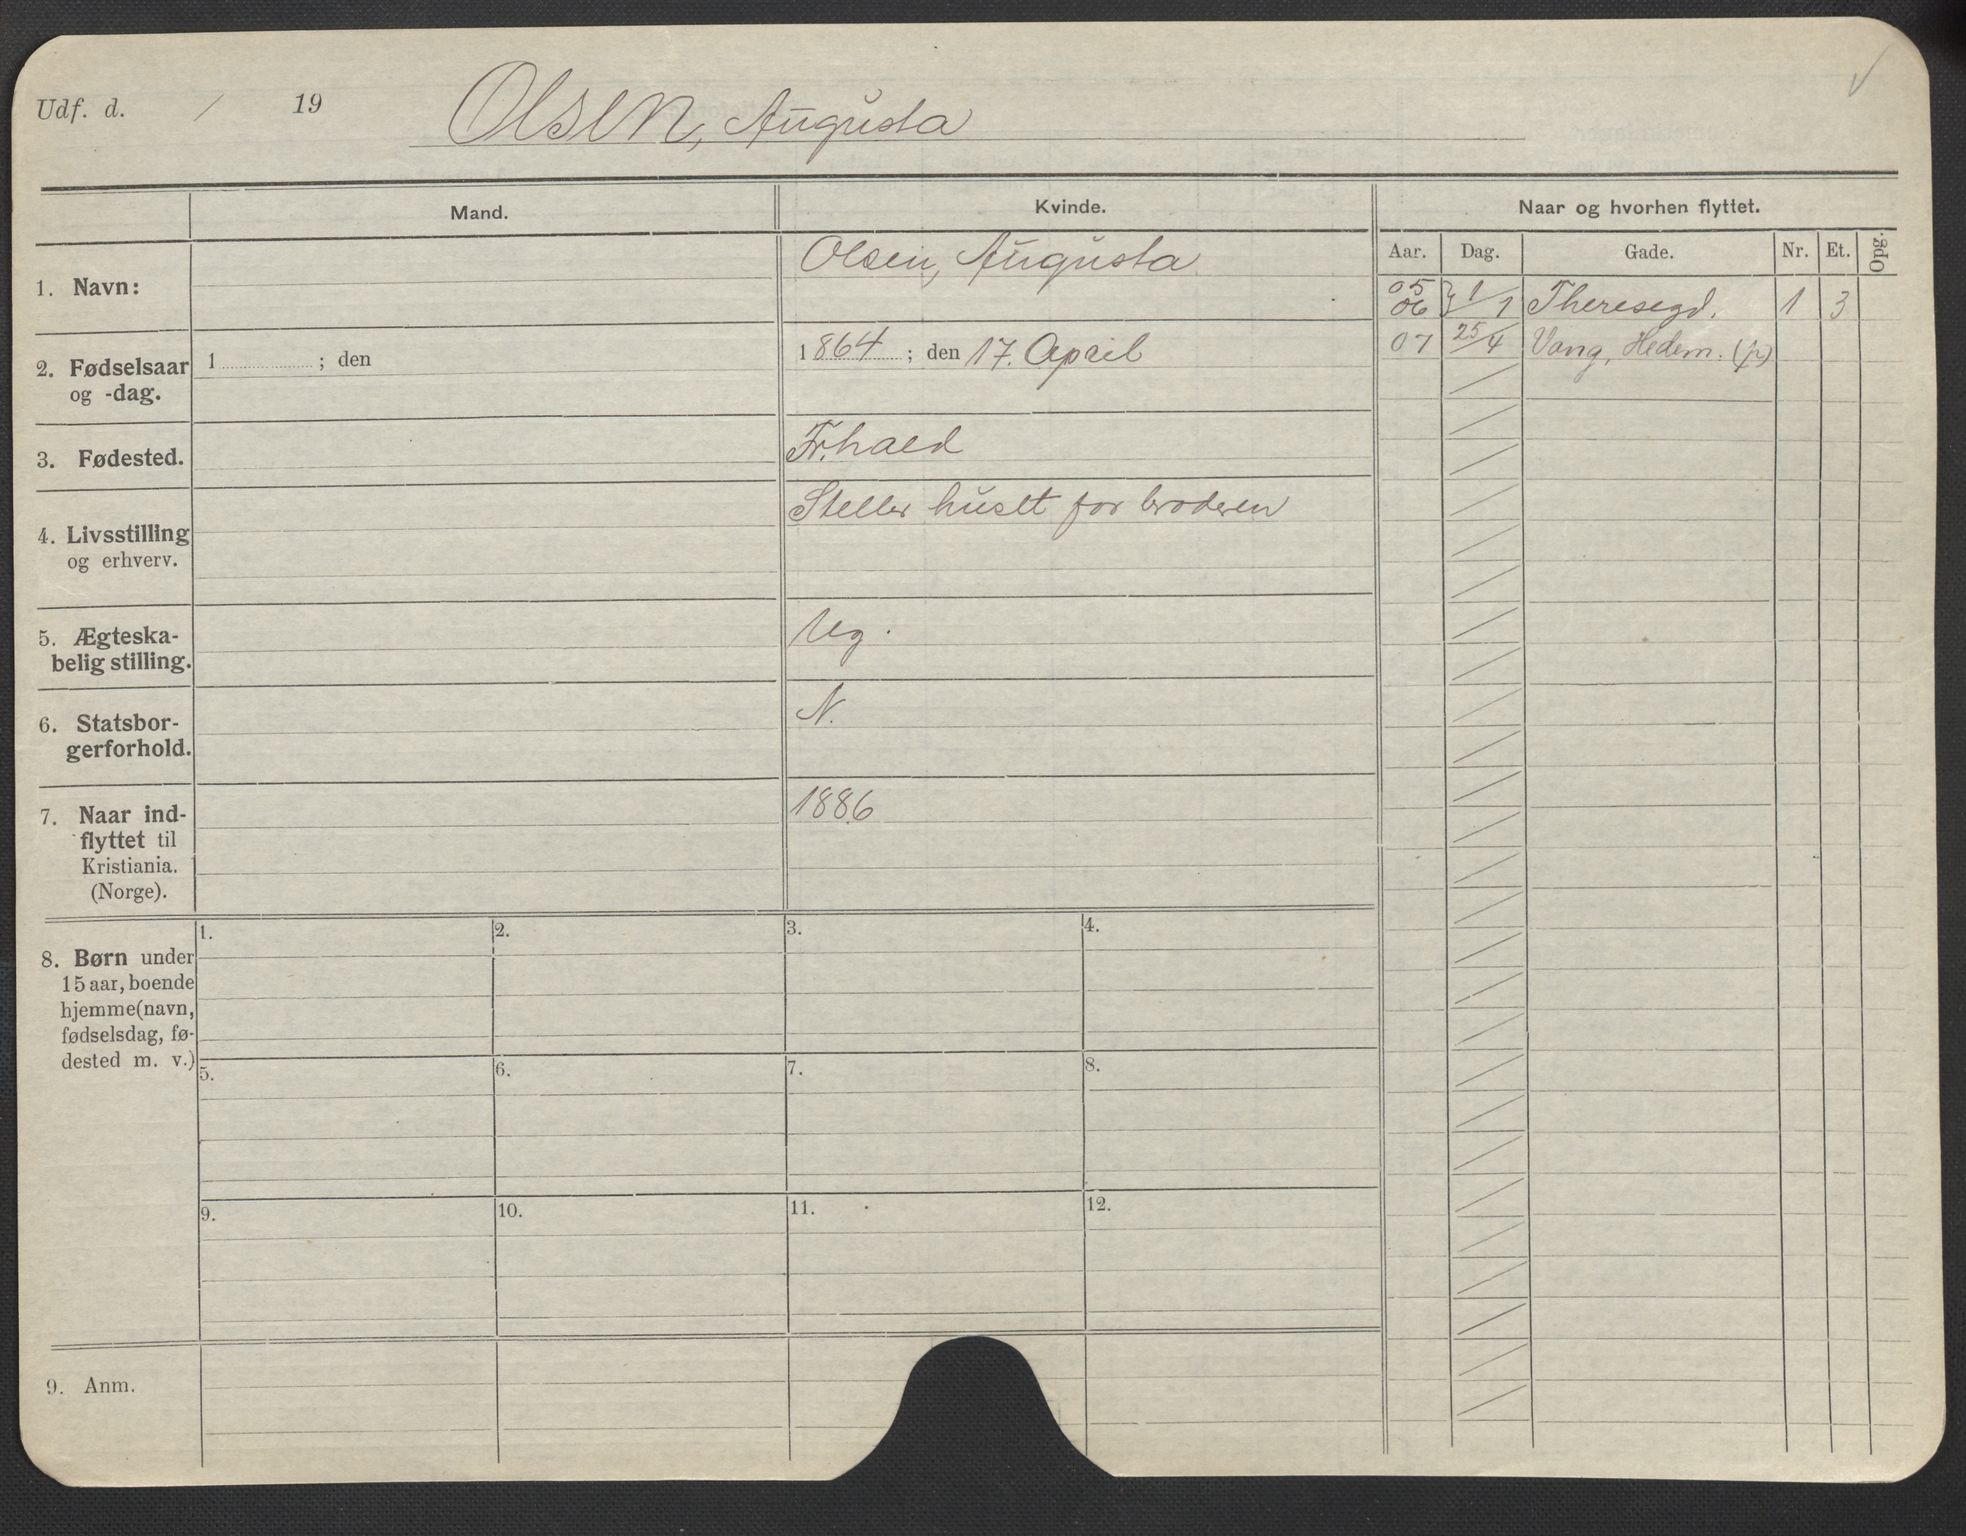 Udf. d. / 19 Olsen, Augusta
Mand.
Kvinde.
Naar og hvorhen flyttet.
Aar. Dag. Gade. Nr. Et. Opg.
1. Navn:
Olsen, Augusta
05
06 } 1/1 Theresegd. 1 3
07 25/4 Vang, Hedem. (p)
2. Fødselsaar
og -dag.
1 ; den
1864 ; den 17. April
3. Fødested.
Fr.hald
4. Livsstilling
og erhverv.
Steller huset for broderen
5. Ægteska-
belig stilling.
Ug.
6. Statsbor-
gerforhold.
N.
7. Naar ind-
flyttet til
Kristiania.
(Norge).
1886
8. Børn under
15 aar, boende
hjemme (navn,
fødselsdag, fø-
dested m. v.)
1. 2. 3. 4.
5. 6. 7. 8.
9. 10. 11. 12.
9. Anm.